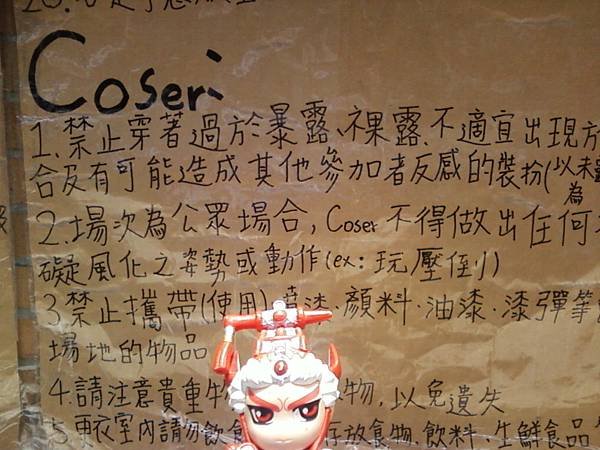 Coser:
1.禁止穿著過於暴露、裸露、不適宜出現於
合及有可能造成其他參加者反感的裝扮(以未
為
2.場次為公眾場合, Coser 不得做出任何
礙風化之姿勢或動作(ex: 玩壓倒)
3.禁止攜帶(使用)噴漆·顏料·油漆·漆彈等
場地的物品
4.請注意貴重物 物, 以免遺失
5.更衣室內請勿飲食 存放食物.飲料.生鮮食品